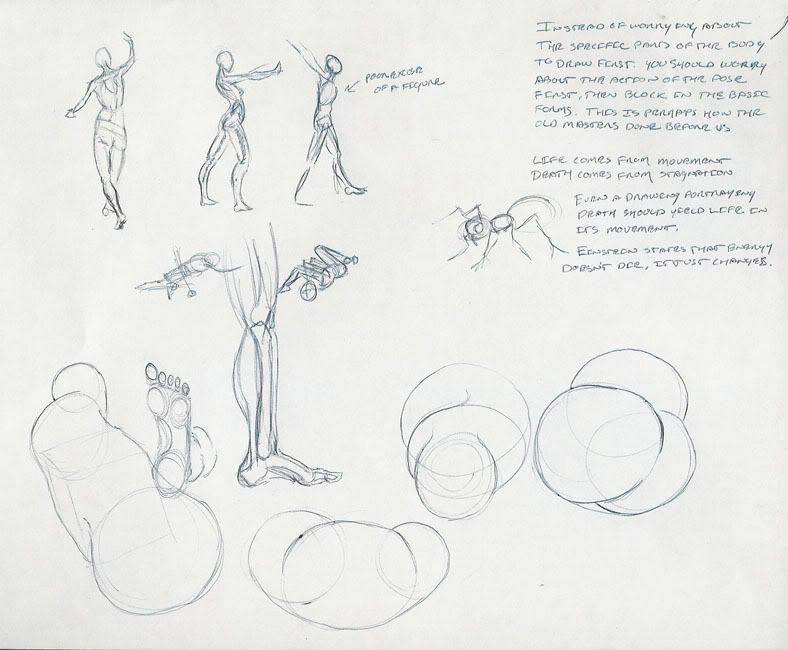 INSTEAD OF WORRYING ABOUT
THE SPECIFIC PARTS OF THE BODY
TO DRAW FIRST. YOU SHOULD WORRY
ABOUT THE ACTION OF THE POSE
FIRST, THEN BLOCK IN THE BASIC
FORMS. THIS IS PERHAPS HOW THE
OLD MASTERS DONE BEFORE US
LIFE COMES FROM MOVEMENT
DEATH COMES FROM STAGNATION
EVEN A DRAWING PORTRAYING
DEATH SHOULD YIELD LIFE IN
ITS MOVEMENT.
EINSTEIN STATES THAT ENERGY
DOESN'T DIE, IT JUST CHANGES.
OF A FIGURE